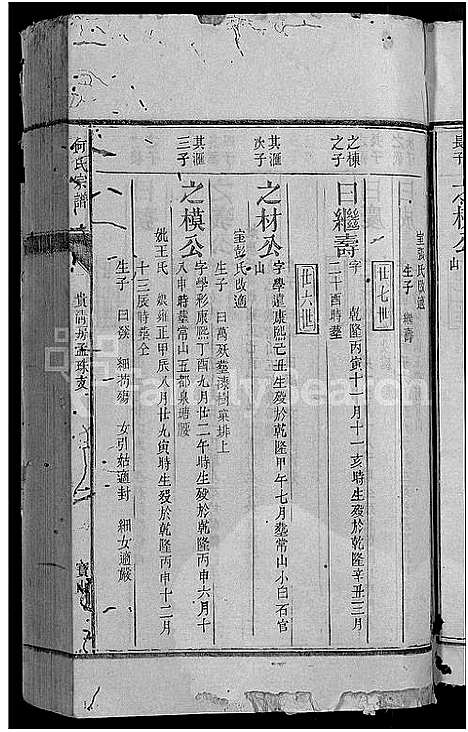 室彭氏改適
生子 樂壽
廿七世
之棟之子
曰繼壽 字 乾隆丙寅十一月十一亥時生歿於乾隆辛丑三月
二十酉時葬
廿六世
其滙次子
之材公 字學遠康熙己丑生歿於乾隆甲午七月葬常山小白石官
山
室彭氏改適
生子 曰萬 歿葬漆樹 排上
其滙三子
之模公 字學彩康熙丁酉九月廿二午時生歿於乾隆丙申六月十
八申時葬常山五都泉塘腰
妣王氏 雍正甲辰八月廿九寅時生歿於乾隆丙申十二月
十三辰時葬仝
生子 曰 細滿殤 女引姑適封 細女適嚴
何氏宗譜
房孟珠支
長子
山
FamilySearch